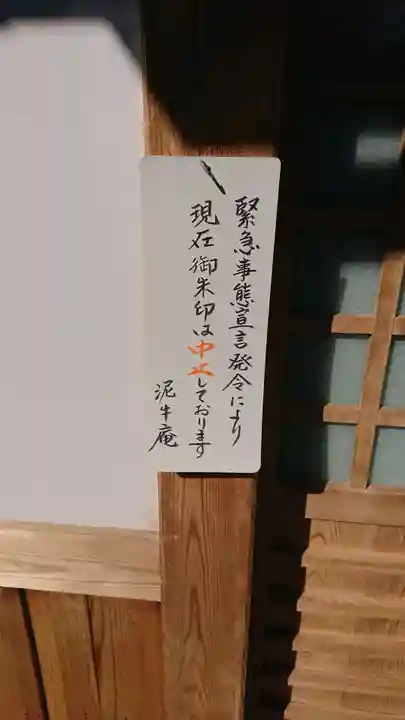 緊急事態宣言発令により
現在御朱印は中止しております
泥牛庵